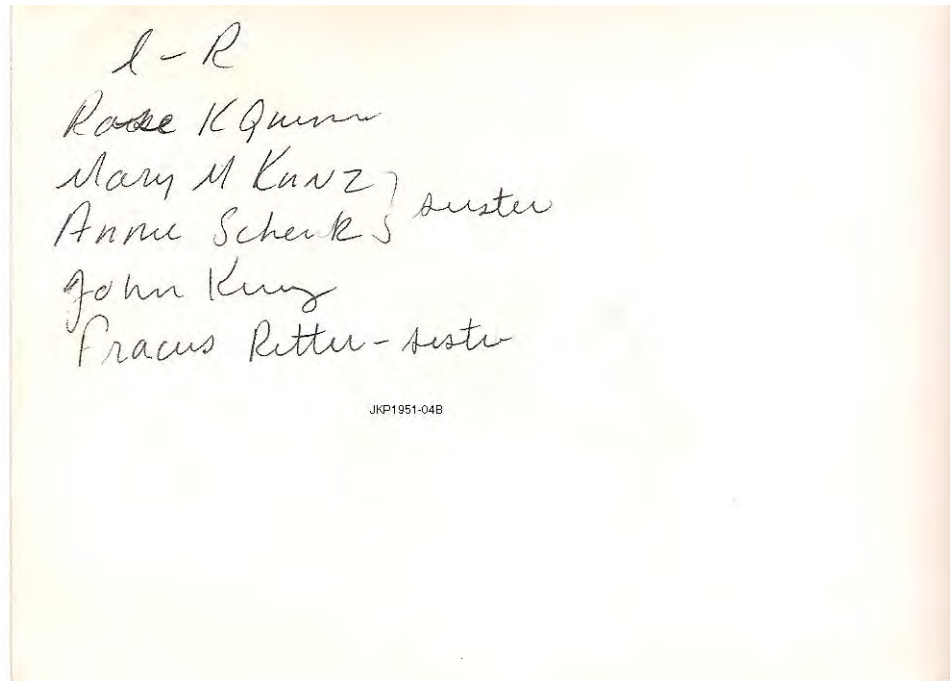 l - R
Rose K Quinn
Mary M Kunz } sister
Annie Schenk }
John Kunz
Fracus Ritter - sister
JKP1951-04B